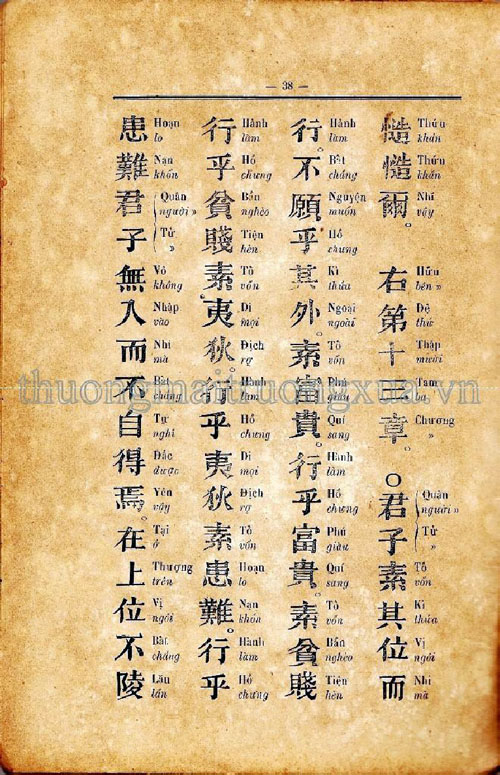 — 38 —
慥慥爾。 右第十三章。○君子素其位而
Thứu khăn Thứu khăn Nhĩ vậy Hữu bên » Đệ thứ Thập mười Tam Chương » Quân người » Tử » Tố vốn Kì thửa Vị ngôi Nhi mà
行。不願乎其外。素富貴。行乎富貴。素貧賤
Hành làm Bất chẳng Nguyện muốn Hồ chưng Kì thửa Ngoại ngoài Tố vốn Phú giàu Quí sang Hành làm Hồ chưng Phú giàu Quí sang Tố vốn Bần nghèo Tiện hèn
行乎貧賤素。夷狄。行乎夷狄素患難。行乎
Hành làm Hồ chưng Bần nghèo Tiện hèn Tố vốn Di mọi Địch rợ Hành làm Hồ chưng Di mọi Địch rợ Tố vốn Hoạn lo Nạn khốn Hành làm Hồ chưng
患難君子無入而不自得焉。在上位不陵
Hoạn lo Nạn khốn Quân người » Tử » Vô không Nhập vào Nhi mà Bất chẳng Tự nghỉ Đắc được Yên vậy Tại ở Thượng trên Vị ngôi Bất chẳng Lăng lấn
thuongmaitruongxua.vn